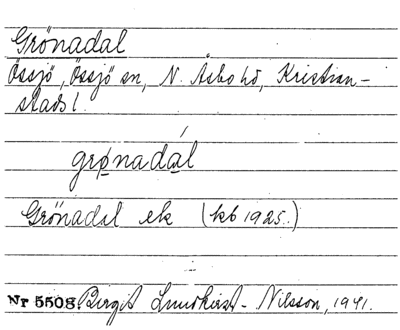 Grönadal
Össjö, Össjö sn, N. Åsbo hd, Kristian-
stads l.
grønadál
Grönadal ek (kb 1925.)
Nr 5508. Birgit Lundkvist-Nilsson, 1941.